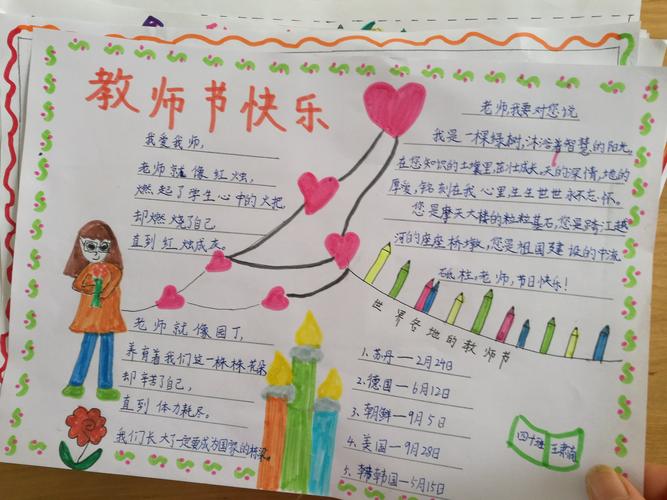 教师节快乐
我爱我师，
老师就像红烛，
燃起了学生心中的火把
却燃烧了自己
直到红烛成灰。
老师我要对您说
我是一棵绿树，沐浴着智慧的阳光，
在您知识的土壤里茁壮成长，天的深情，地的
厚爱，铭刻在我心里生生世世永不忘怀。
您是摩天大楼的粒粒基石，您是跨江越
河的座座桥墩，您是祖国建设的中流
砥柱，老师，节日快乐！
世界各地的教师节
老师就像园丁，
养育着我们这一株株花朵
却辛苦了自己，
直到体力耗尽。
我们长大了一定要成为国家的栋梁。
1、苏丹——2月24日
2、德国——6月12日
3、朝鲜——9月5日
4、美国——9月28日
5、韩国——5月15日
四十班